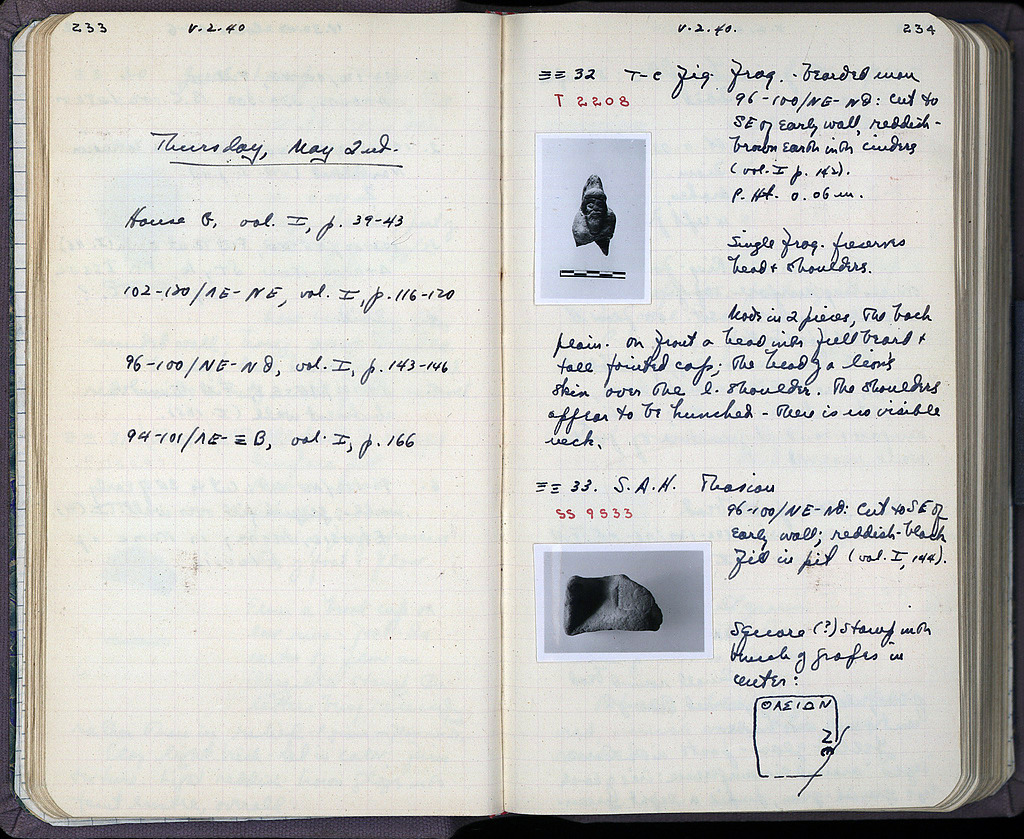 233
V.2.40
Thursday, May 2nd.
House G, vol. I, p. 39-43
102-120/ΛE-NE, vol. I, p. 116-120
96-100/NE-NΘ, vol. I, p. 143-146
94-101/ΛE-ΞB, vol. I, p. 166
V.2.40.
234
ΞΞ 32 T-C Fig. Frag. - bearded man
T 2208
96-100/NE-NΘ: cut to
SE of early wall, reddish-
brown earth with cinders
(vol. I p. 142).
P. Ht. 0.06 m.
Single frag. preserves
head & shoulders.
Made in 2 pieces, the back
plain. On front a head with full beard &
tall pointed cap; the head of a lion's
skin over the l. shoulder. The shoulders
appear to be hunched - there is no visible
neck.
ΞΞ 33. S.A.H. Thasian
SS 9533
96-100/NE-NΘ: cut to SE of
early wall; reddish-black
fill in pit (vol. I, 144).
Square (?) stamp with
bunch of grapes in
center:
ΘΑΣΙΩΝ